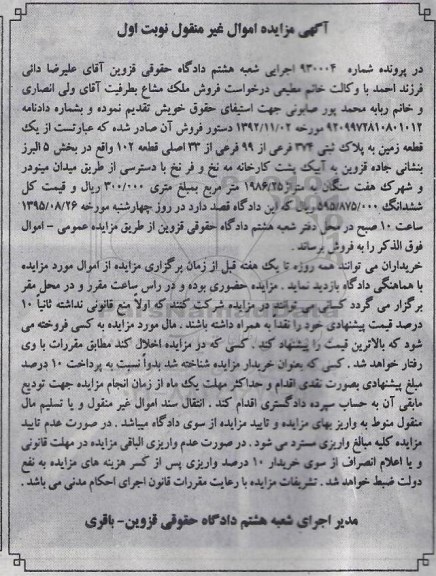 آگهی مزایده اموال غیر منقول نوبت اول
در پرونده شماره ۹۳۰۰۰۴ اجرایی شعبه هشتم دادگاه حقوقی قزوین آقای علیرضا دائی
فرزند احمد با وکالت خانم مطیعی درخواست فروش ملک مشاع بطرفیت آقای ولی انصاری
و خانم ربابه محمد پور صابونی جهت استیفای حقوق خویش تقدیم نموده و بشماره دادنامه
۹۲۰۹۹۷۲۸۱۰۸۰۱۰۱۲ مورخه ۱۳۹۲/۱۱/۰۲ دستور فروش آن صادر شده که عبارتست از یک
قطعه زمین به پلاک ثبتی ۳۷۴ فرعی از ۹۹ فرعی از ۳۳ اصلی قطعه ۱۰۲ واقع در بخش ۵ البرز
بنشانی جاده قزوین به آبیک پشت کارخانه مه نخ و فر نخ با دسترسی از طریق میدان مینودر
و شهرک هفت سنگان به متراژ ۱۹۸۶/۲۵ متر مربع بمبلغ متری ۳۰۰/۰۰۰ ریال و قیمت کل
ششدانگ ۵۹۵/۸۷۵/۰۰۰ ریال که این دادگاه قصد دارد در روز چهارشنبه مورخه ۱۳۹۵/۰۸/۲۶
ساعت ۱۰ صبح در محل دفتر شعبه هشتم دادگاه حقوقی قزوین از طریق مزایده عمومی - اموال
فوق الذکر را به فروش برساند .
خریداران می توانند همه روزه تا یک هفته قبل از زمان برگزاری مزایده از اموال مورد مزایده
با هماهنگی دادگاه بازدید نماید . مزایده حضوری بوده و در راس ساعت مقرر و در محل مقر
برگزار می گردد کسانی می توانند در مزایده شرکت کنند که اولاً منع قانونی نداشته ثانیاً ۱۰
درصد قیمت پیشنهادی خود را نقداً به همراه داشته باشند . مال مورد مزایده به کسی فروخته می
شود که بالاترین قیمت را پیشنهاد کند . کسی که در مزایده اخلال کند مطابق مقررات با وی
رفتار خواهد شد . کسی که بعنوان خریدار مزایده شناخته شد بدواً نسبت به پرداخت ۱۰ درصد
مبلغ پیشنهادی بصورت نقدی اقدام و حداکثر مهلت یک ماه از زمان انجام مزایده جهت تودیع
مابقی آن به حساب سپرده دادگستری اقدام کند . انتقال سند اموال غیر منقول و یا تسلیم مال
منقول منوط به واریز بهای مزایده و تایید مزایده از سوی دادگاه میباشد . در صورت عدم تایید
مزایده کلیه مبالغ واریزی مسترد می شود . در صورت عدم واریزی الباقی مزایده در مهلت قانونی
و یا اعلام انصراف از سوی خریدار ۱۰ درصد واریزی پس از کسر هزینه های مزایده به نفع
دولت ضبط خواهد شد . تشریفات مزایده با رعایت مقررات قانون اجرای احکام مدنی می باشد .
مدیر اجرای شعبه هشتم دادگاه حقوقی قزوین- باقری